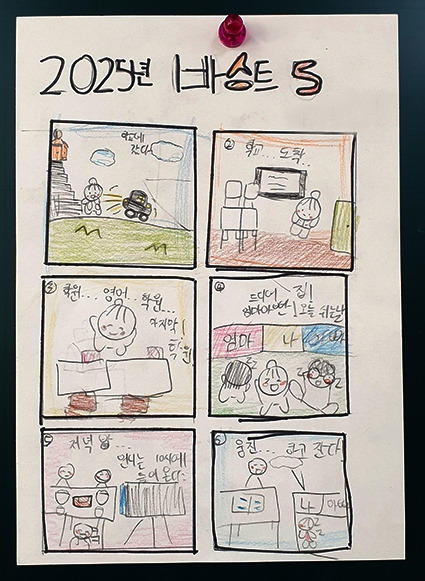 2025년 바슴트 5
학교에
갔다
②
학교... 도착..
③
학원... 영어... 학원
마지막!
학원
④
드디어 집!
엄마아안~! 오늘 쉬는날
엄마 나 아빠
zz
⑤
저녁 밥...
언니는 10시에
들어온다.
⑥
웅진...
하고 잔다
나 아빠
zz